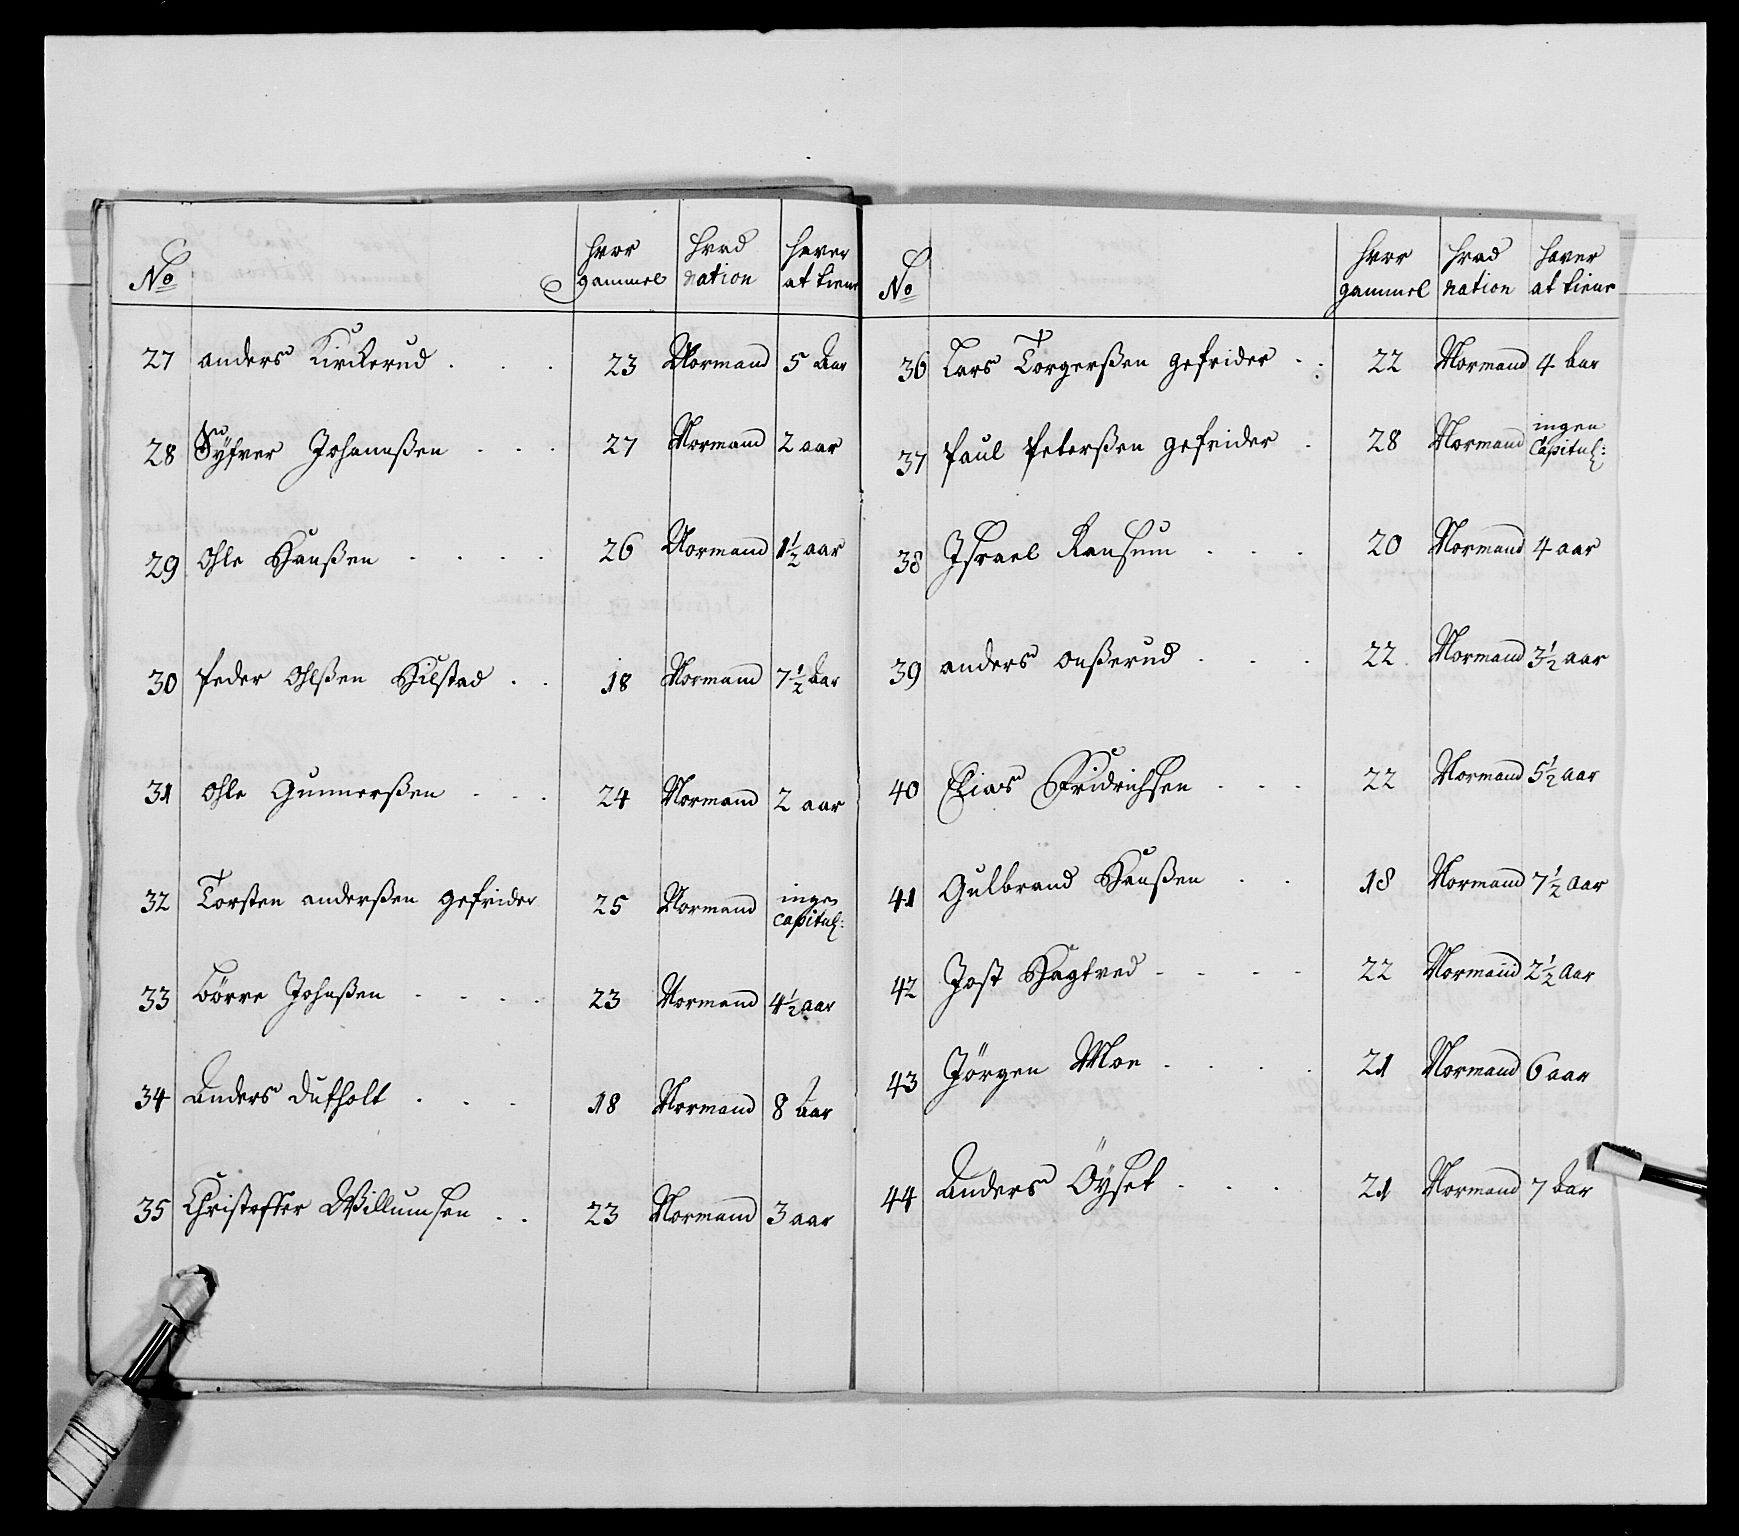 No hvor gammel hvad nation haver at tiene
27 anders Kirckerud . . . 23 Normand 5 Aar
28 Syfver Johannßen . . . 27 Normand 2 aar
29 Ohle Hanßen . . . . 26 Normand 1½ aar
30 Peder Ohlßen Hilstad . . 18 Normand 7½ Aar
31 Ohle Gunnerßen . . . 24 Normand 2 aar
32 Torsten anderßen gefrider 25 Normand ingen Capitul:
33 Börre Johnßen . . . . 23 Normand 4½ aar
34 Anders Dufholt . . . 18 Normand 8 Aar
35 Christoffer Willumsen . . 23 Normand 3 aar
No hvor gammel hvad nation haver at tiene
36 Lars Torgerßen gefrider . . 22 Normand 4 Aar
37 Paul Peterßen gefrider . 28 Normand ingen Capitul:
38 Israel Ransum . . . 20 Normand 4 aar
39 anders Onßerud . . . 22 Normand 3½ aar
40 Elias Fridrichsen . . . 22 Normand 5½ aar
41 Gulbrand Hanßen . . 18 Normand 7½ Aar
42 Jost Hagtved . . . . 22 Normand 2½ Aar
43 Jörgen Moe . . . . 21 Normand 6 aar
44 Anders Öyset . . . 21 Normand 7 Aar